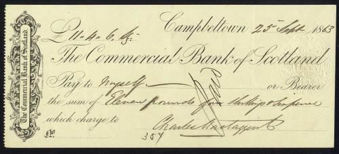 Campbeltown 25 Sept 1863
£11.4.6
The Commercial Bank of Scotland
Pay to Myself or Bearer
the sum of Eleven pounds
which charge to
The Commercial Bank of Scotland